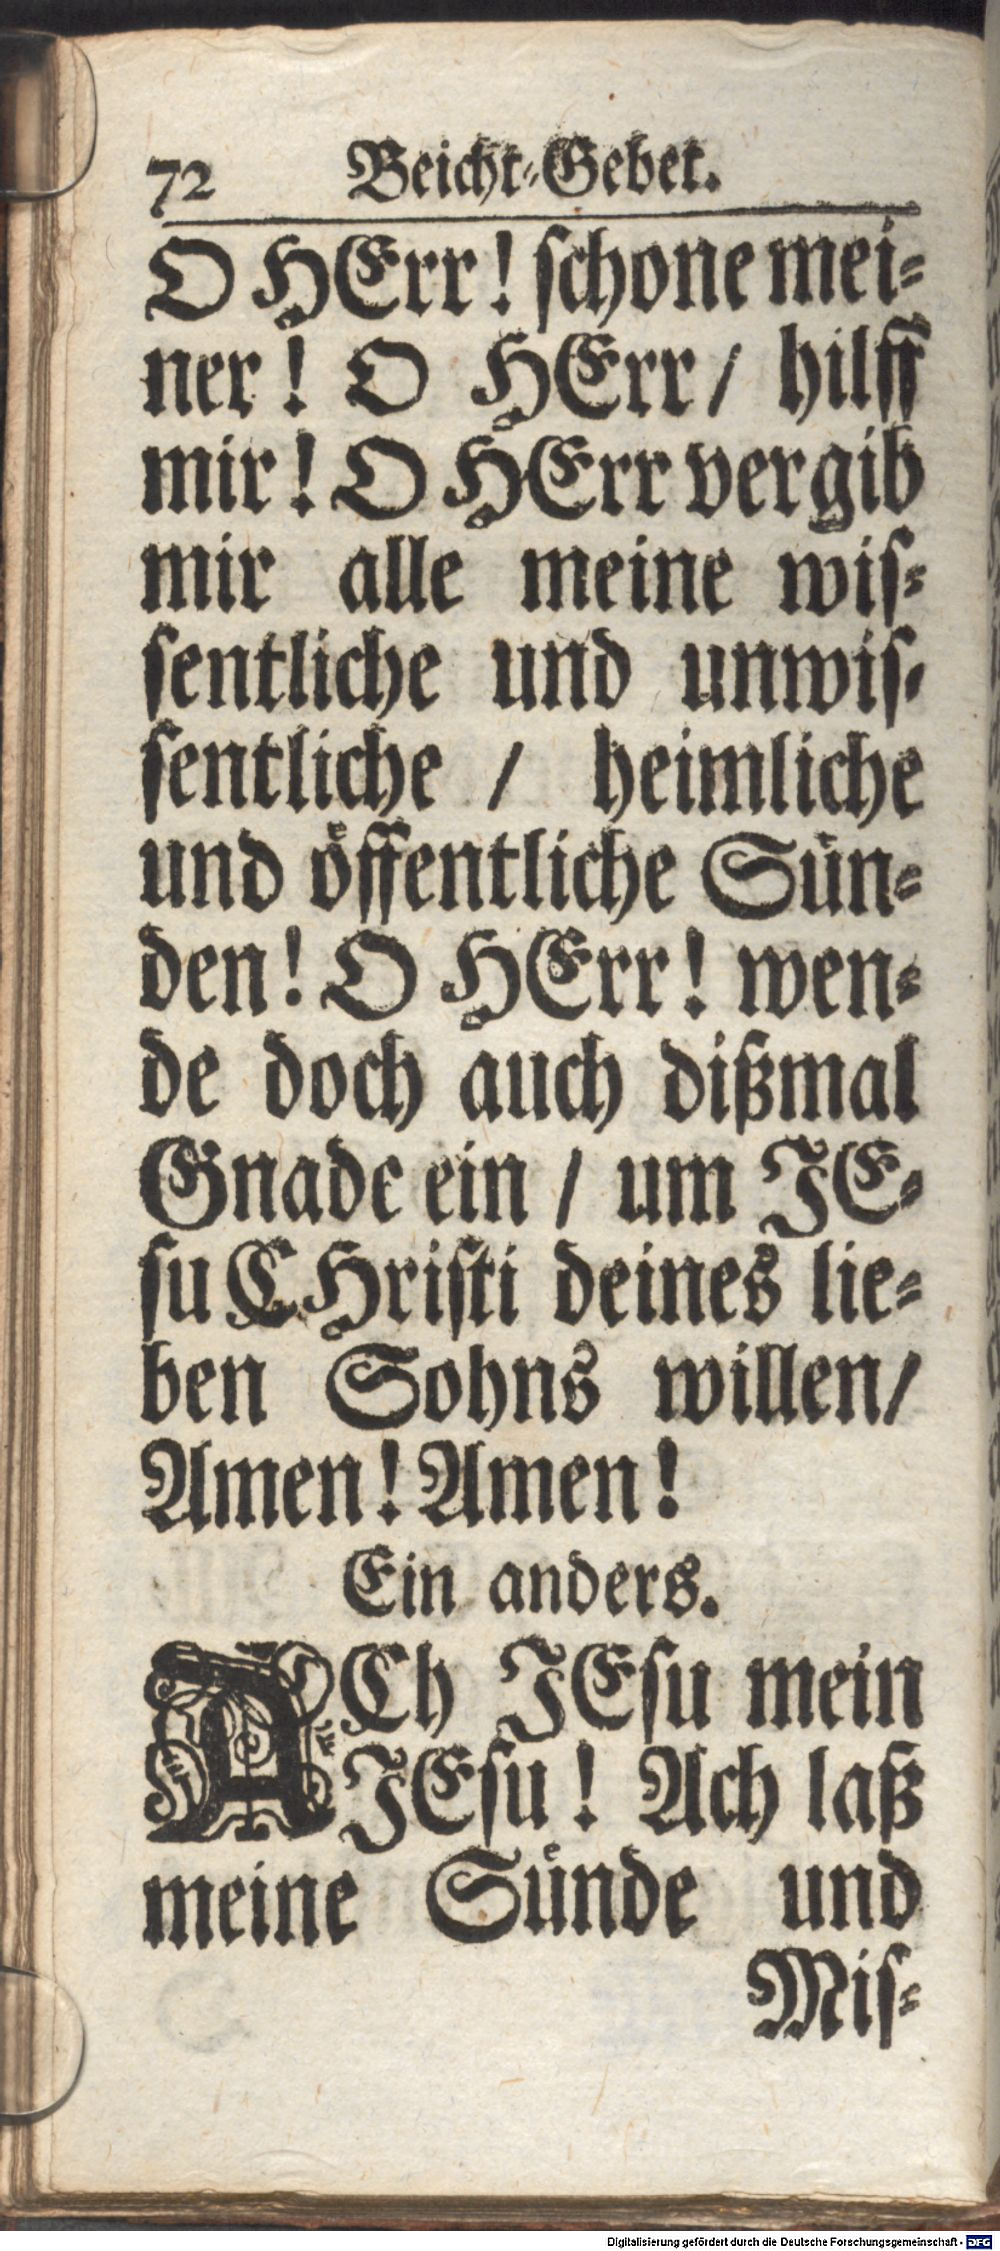 72 Beicht-Gebet.
O HErr! schone mei-
ner! O HErr/ hilff
mir! O HErr vergib
mir alle meine wis-
sentliche und unwis-
sentliche / heimliche
und öffentliche Sün-
den! O HErr! wen-
de doch auch dißmal
Gnade ein / um JE-
su CHristi deines lie-
ben Sohns willen/
Amen! Amen!
Ein anders.
ACh JEsu mein
JEsu! Ach laß
meine Sünde und
Mis-
Digitalisierung gefördert durch die Deutsche Forschungsgemeinschaft - DFG